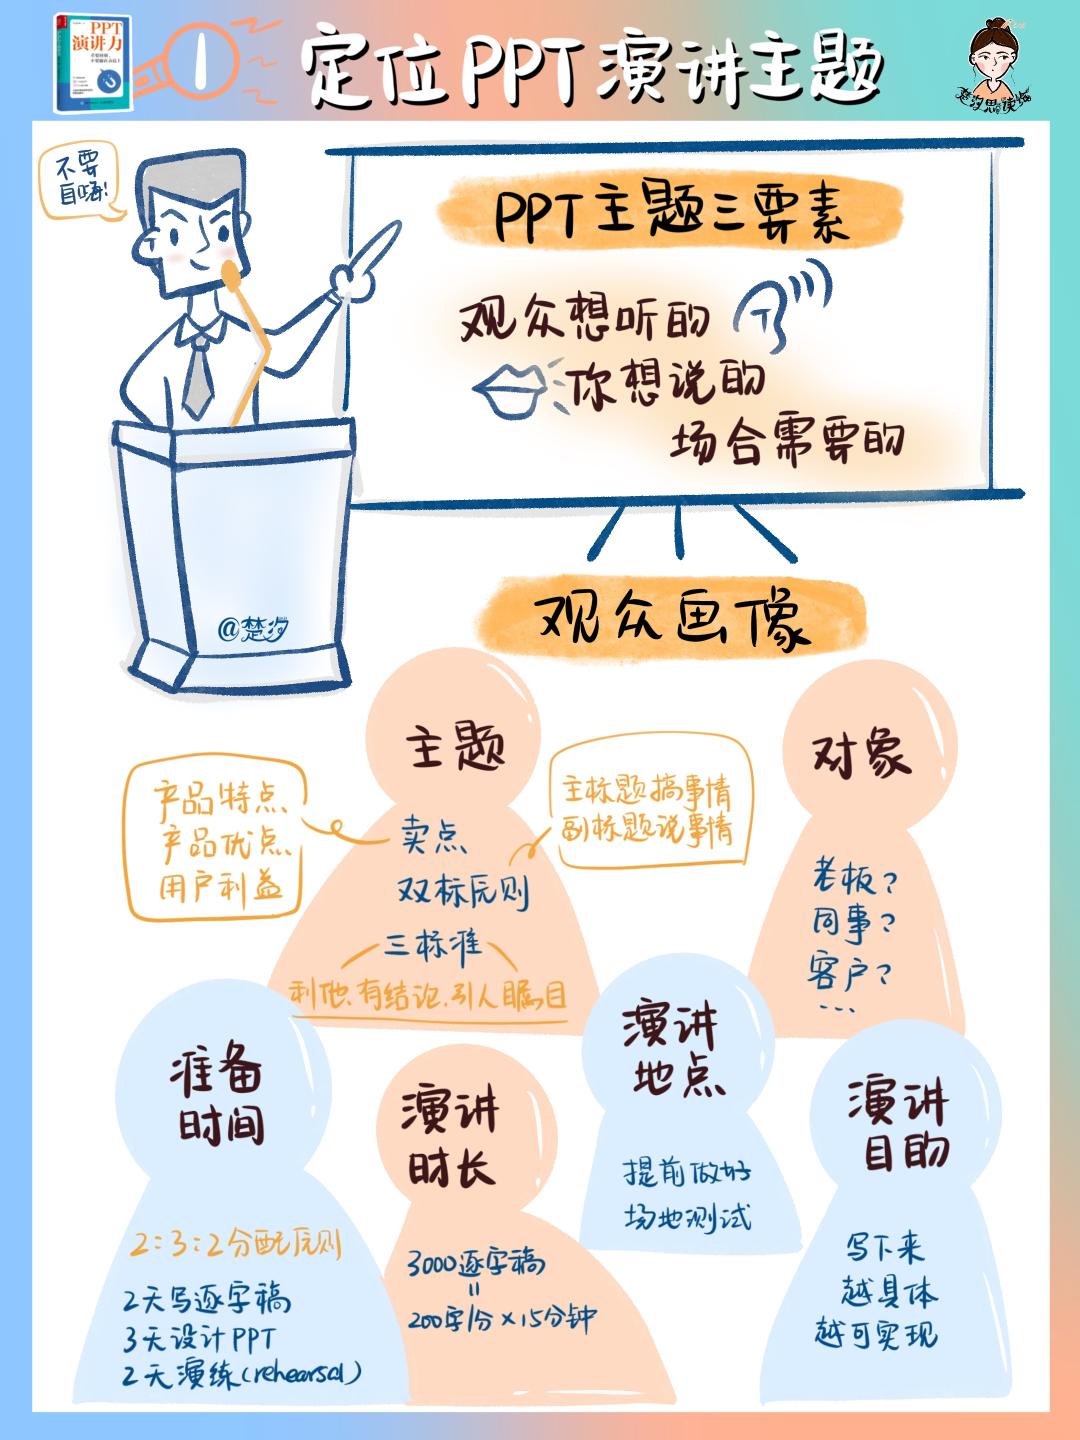 PPT
演讲力
1
定位PPT演讲主题
楚汐思读悟
不要
自嗨!
PPT主题三要素
观众想听的
你想说的
场合需要的
@楚汐
观众画像
主题
产品特点、
产品优点、
用户利益
主标题搞事情
副标题说事情
卖点
双标原则
三标准
利他、有结论、引人瞩目
对象
老板?
同事?
客户?
...
准备
时间
2:3:2分配原则
2天写逐字稿
3天设计PPT
2天演练(rehearsal)
演讲
时长
3000逐字稿
=
200字/分×15分钟
演讲
地点
提前做好
场地测试
演讲
目的
写下来
越具体
越可实现